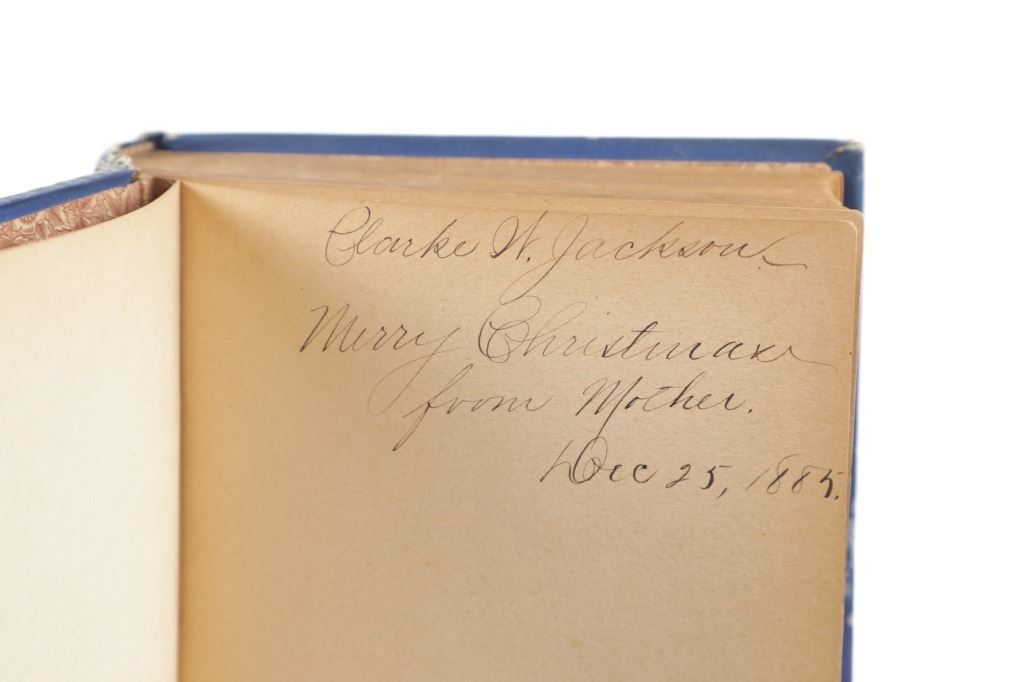 Clarke W. Jackson.
Merry Christmas
from Mother.
Dec 25, 1885.